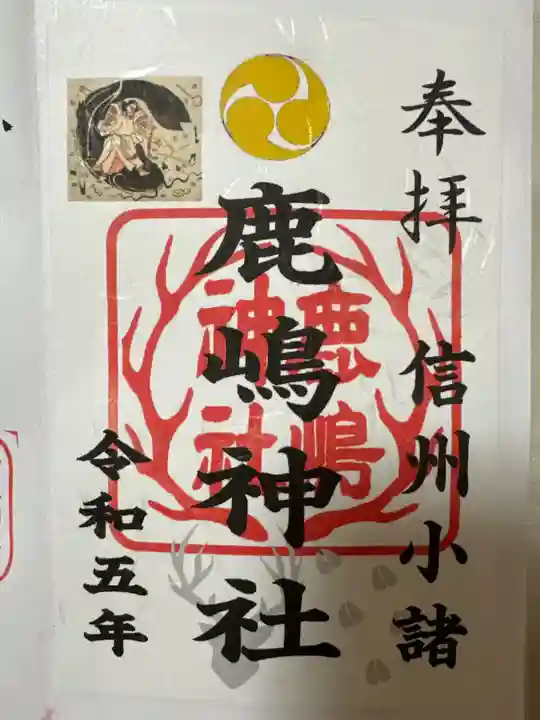 奉拝 信州小諸
鹿嶋神社
鹿嶋
神社
令和五年